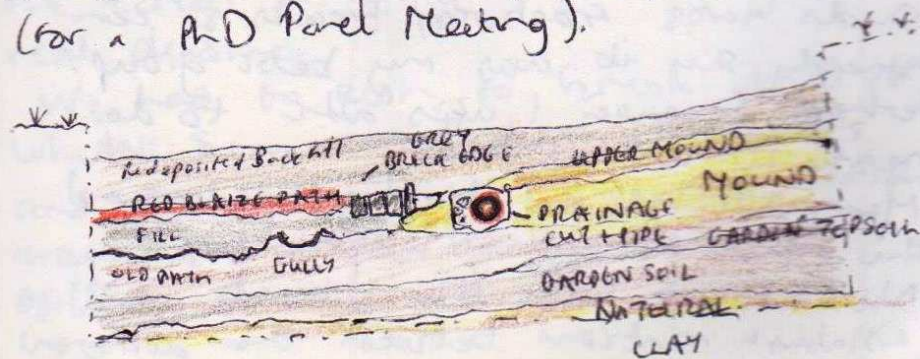 (for a PhD Panel Meeting).
Redeposited Backfill
GREY
BRICK EDGE
UPPER MOUND
RED BLAIZE PATH
MOUND
FILL
DRAINAGE
CUT + PIPE
GARDEN TOPSOIL
OLD PATH
GULLY
GARDEN SOIL
NATURAL
CLAY